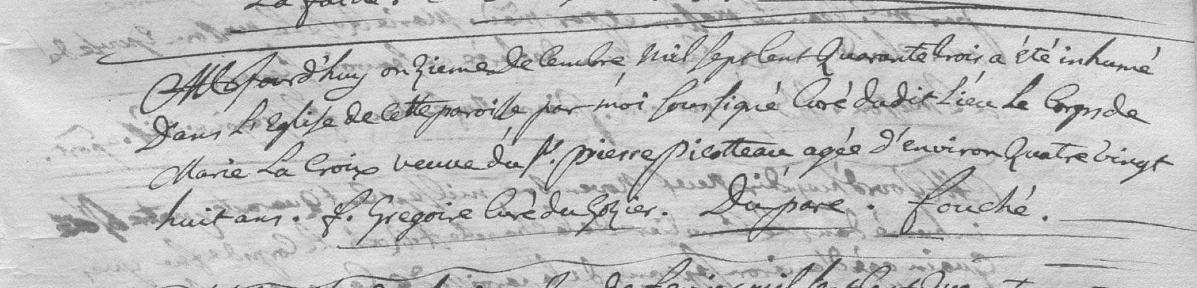 Aujourd'huy onzieme decembre Mil sept cent Quarante trois a été inhumé
Dans L'Eglise de Cette paroisse par moi soussigné Curé dudit Lieu Le Corps de
Marie La Croix veuve du Sr. pierre Picotteau agée d'environ Quatre vingt
huit ans. f. Gregoire Curé du Gozier. Dupare. fouché.